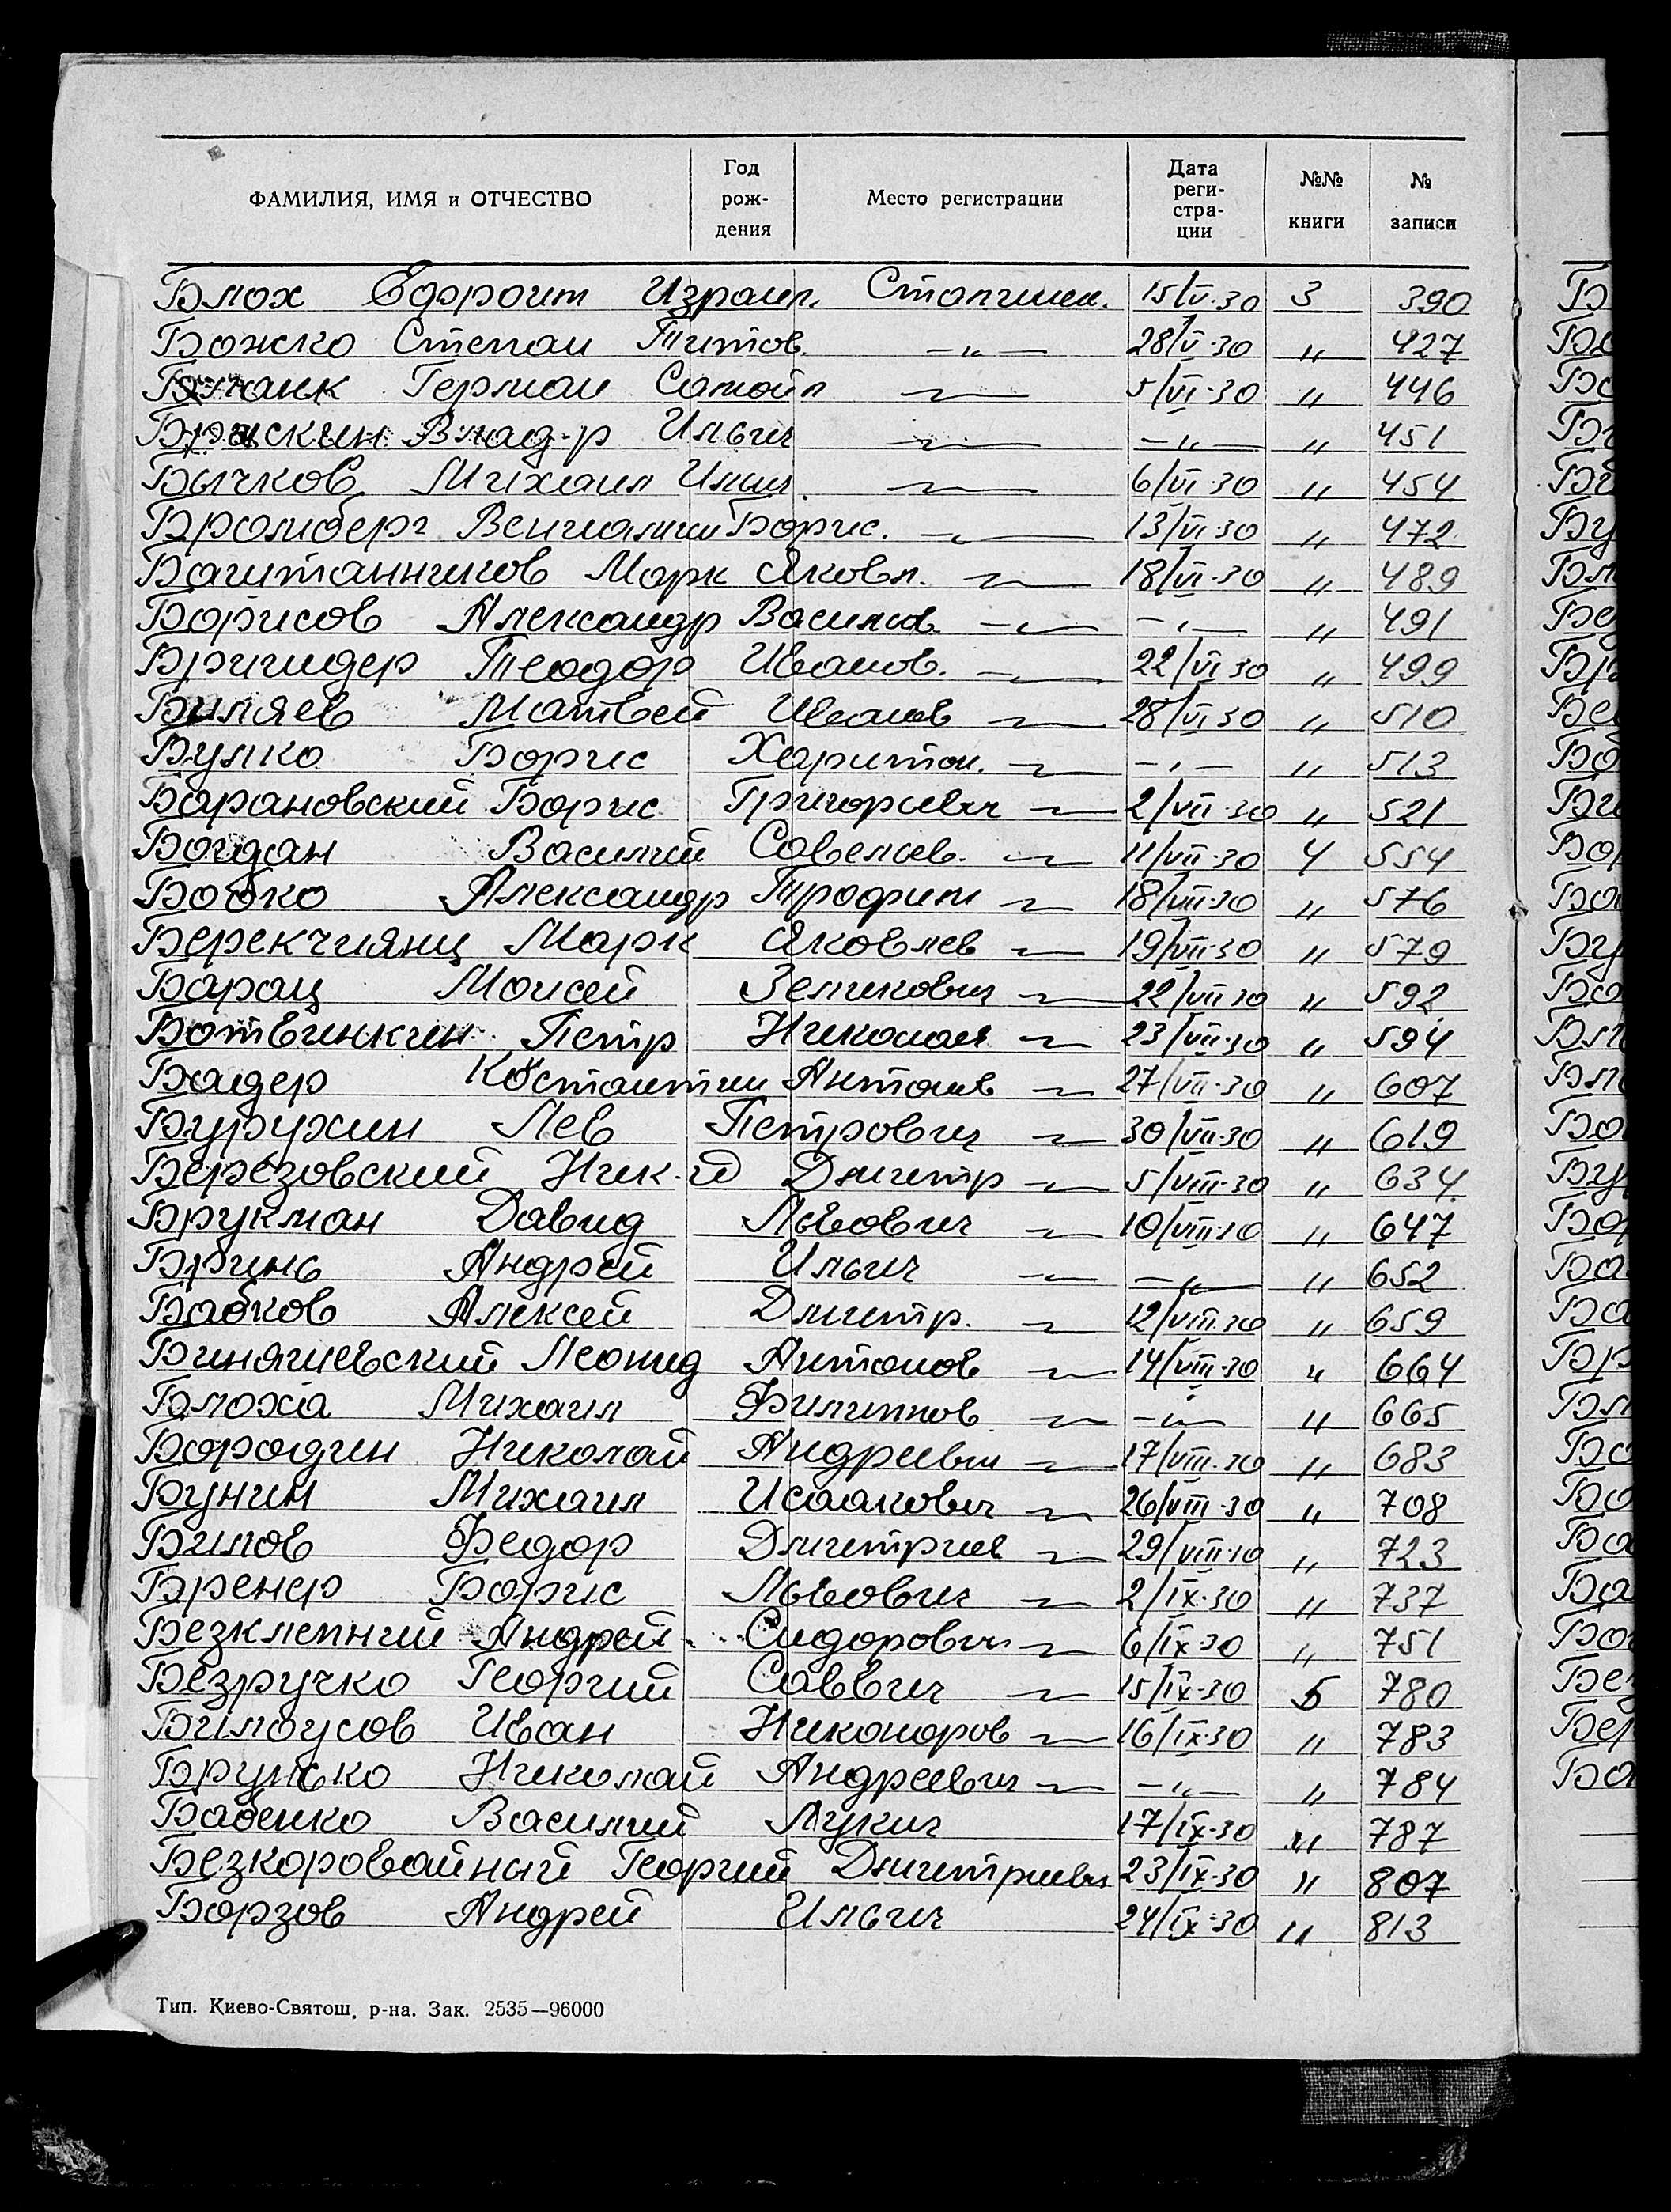 ФАМИЛИЯ, ИМЯ и ОТЧЕСТВО Год рождения Место регистрации Дата регистрации №№ книги № записи
Блох Ефроим Израил. Сталинск. 15/V-30 3 390
Божко Степан Титов. -„- 28/V-30 „ 427
Герман Самойл -„- 5/VI-30 „ 446
Влад-р Ильич -„- -„- „ 451
Бычков Михаил Ильич. -„- 6/VI-30 „ 454
Бромберг Вениамин Борис. -„- 13/VI-30 „ 472
Баштанников Марк Яковл. -„- 18/VI-30 „ 489
Борисов Александр Васильев. -„- -„- „ 491
Теодор Иванов. -„- 22/VI-30 „ 499
Биляев Матвей Иванов -„- 28/VI-30 „ 510
Булко Борис Харитон. -„- -„- „ 513
Барановский Борис Григорьевич -„- 2/VII-30 „ 521
Богдан Василий Савельев. -„- 11/VII-30 4 554
Бобко Александр Трофим -„- 18/VII-30 „ 576
Берекчиянц Марк Яковлев -„- 19/VII-30 „ 579
Барац Моисей Зеликович -„- 22/VII-30 „ 592
Ботвинкин Петр Николаев -„- 23/VII-30 „ 594
Бадер Костантин Антонов -„- 27/VII-30 „ 607
Лев Петрович -„- 30/VII-30 „ 619
Березовский Ник-й Дмитр -„- 5/VIII-30 „ 634
Брукман Давид Львович -„- 10/VIII-30 „ 647
Бринь Андрей Ильич -„- -„- „ 652
Бабков Алексей Дмитр. -„- 12/VIII-30 „ 659
Леонид Антонов -„- 14/VIII-30 „ 664
Блоха Михаил Филиппов -„- -„- „ 665
Бородин Николай Андреевич -„- 17/VIII-30 „ 683
Бунин Михаил Исаакович -„- 26/VIII-30 „ 708
Билов Федор Дмитриев -„- 29/VIII-30 „ 723
Бренер Борис Львович -„- 2/IX-30 „ 737
Безклепний Андрей Сидорович -„- 6/IX-30 „ 751
Безручко Георгий Саввич -„- 15/IX-30 5 780
Билоусов Иван Никоноров -„- 16/IX-30 „ 783
Брунько Николай Андреевич -„- -„- „ 784
Бабенко Василий Лукич 17/IX-30 „ 787
Безкоровайный Георгий Дмитриевич 23/IX-30 „ 807
Борзов Андрей Ильич 24/IX-30 „ 813
Тип. Киево-Святош. р-на. Зак. 2535—96000